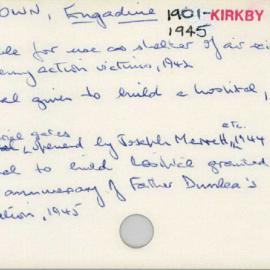 OWN, Engadine 1901- KIRKBY
1945
for use as shelter of air
enemy action victims, 1942
given to build a hospital,
gates etc.
opened by Joseph Merrett, 1944
to build hospital granted
anniversary of Father Dunlea's
1945